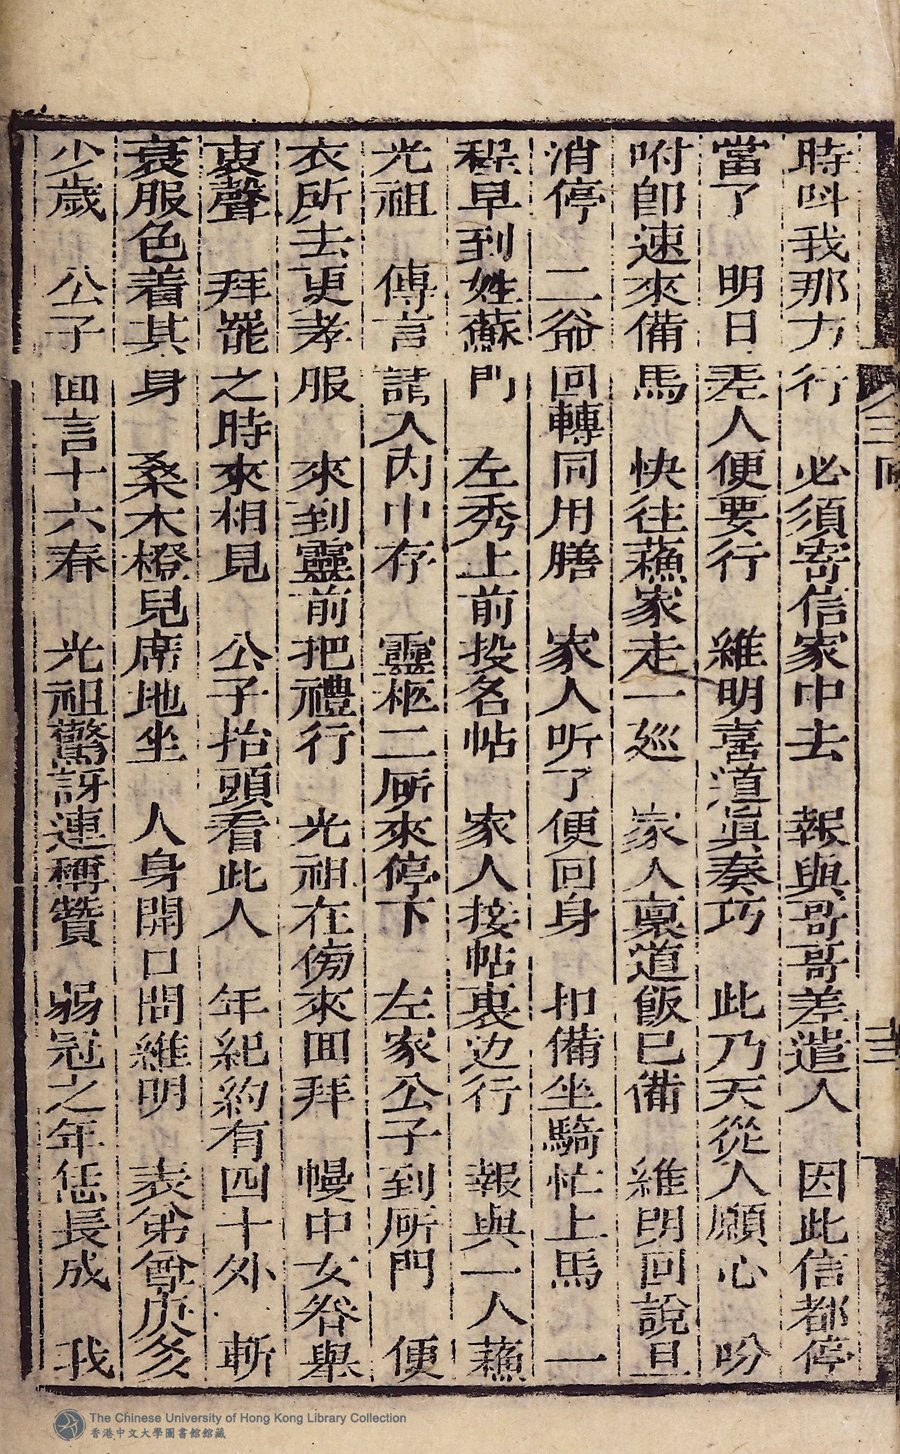 時呌我那方行　必須寄信家中去　報與哥哥差遣人　因此信都停
當了　明日差人便要行　維明喜道眞奏巧　此乃天從人願心　吩
咐卽速來備馬　快往蘓家走一廵　家人稟道飯已備　維明回說且
消停　二爺回轉同用膳　家人听了便回身　扣備坐騎忙上馬　一
程早到姓蘇門　左秀上前投名帖　家人接帖裏边行　報與一人蘓
光祖　傳言請入內中存　靈柩二厛來停下　左家公子到厛門　便
衣所去更孝服　來到靈前把禮行　光祖在傍來囬拜　幔中女眷舉
哀聲　拜罷之時來相見　公子抬頭看此人　年紀約有四十外　斬
衰服色着其身　桑木橙兒席地坐　人身開口問維明　表弟尊庚多
少歲　公子囬言十六春　光祖驚訝連稱贊　弱冠之年恁長成　我
全三囘
十三
The Chinese University of Hong Kong Library Collection
香港中文大學圖書館館藏